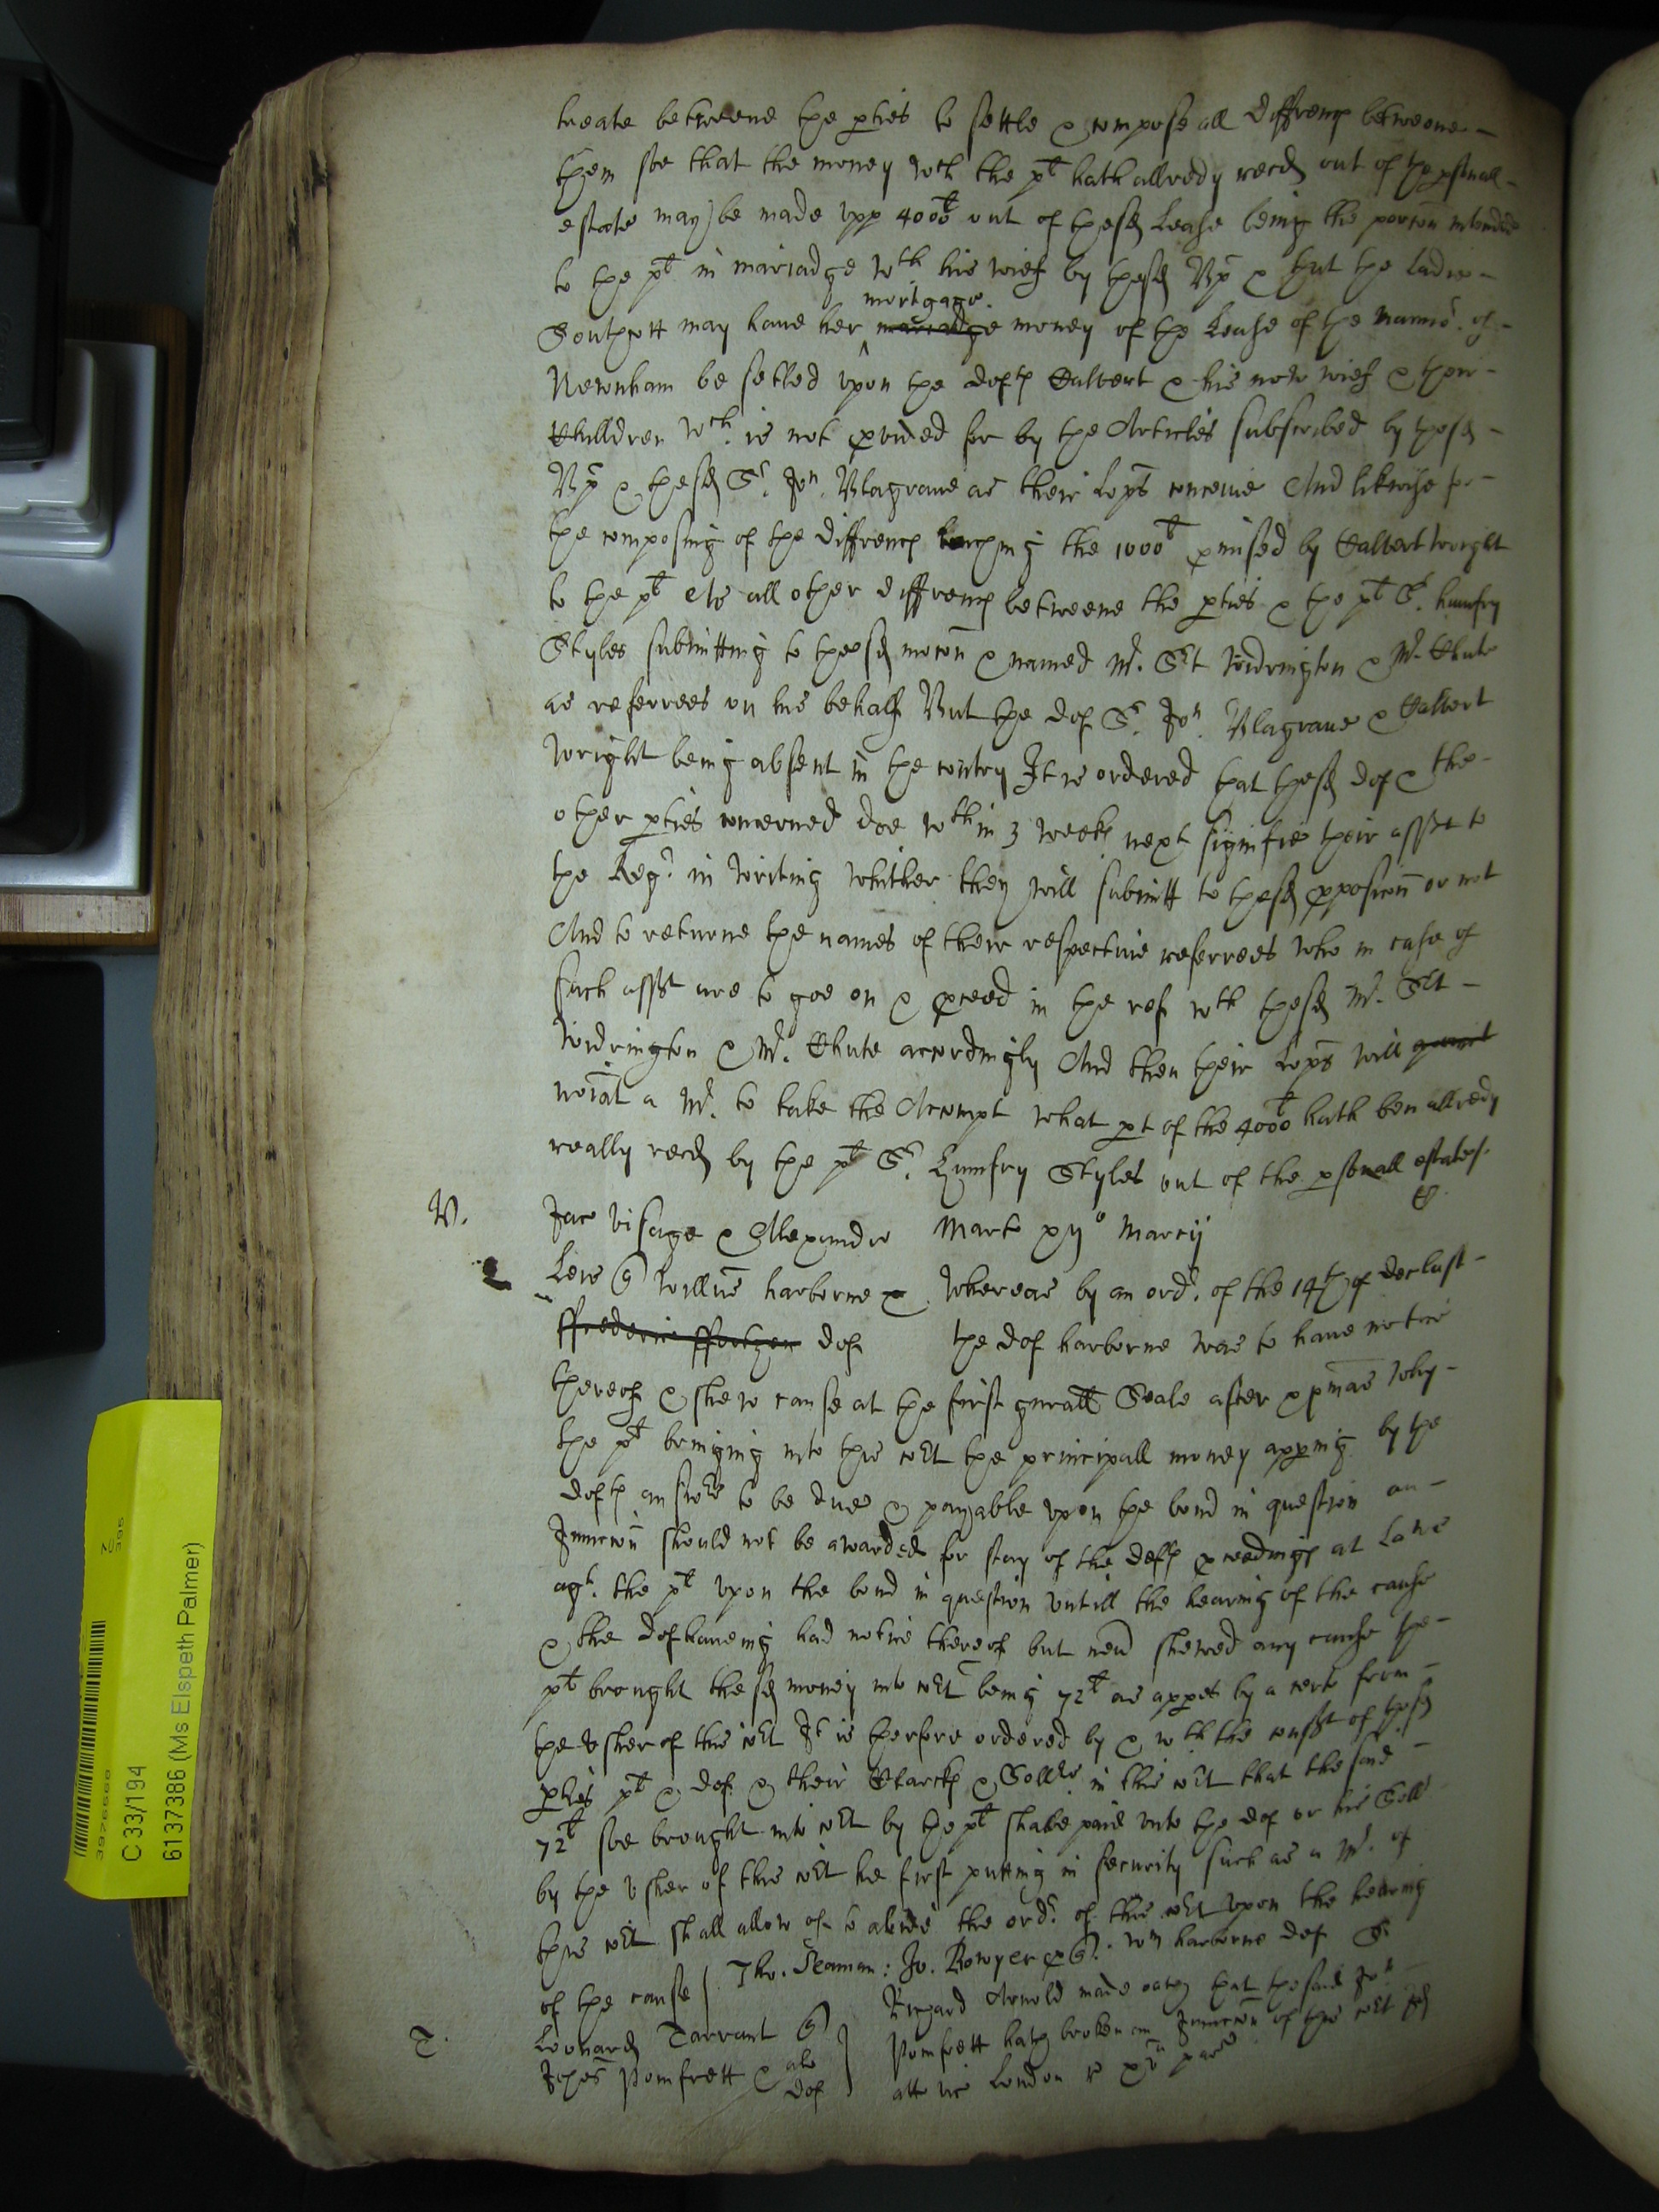 treate betweene the pties to settle & compose all diffrenc betweene
them soe that the money wch the plt hath allredy recd out of the psonall
estate may be made upp 4000l out of the sd Lease being the porcon intended
to the plt in mariadge wth his wief by the sd Bp & that the Ladie
Southcott may have her mariadge mortgage money of the Lease of the mannor of
Newnham be setled upon the deft Calvert & his now wief & their
Chilldren wch is not pvided for by the Articles subscribed by the sd
Bp & the sd Sr Jon. Blagrave as their Lopps conceive And likewise for
the composing of the diffrenc touching the 1000l pmised by Calvert Wright
to the plt & all other diffrenc betweene the pties & the plt Sr. humfry
Styles submitting to the sd mocon & named Mr. Sert Widrington & Mr. Chute
as referrees on his behalf But the def Sr. Jon. Blagrave & Calvert
Wright being absent in the contry It is ordered that the sd def & the
other pties concerned doe wthin 3 weeks next signifie their assent to
the Regr in writing whither they will submitt to the sd pposicon or not
And to returne the names of their respective referrees who in case of
such assent are to goe on & pceed in the ref wth the sd Mr. Sert
Widrington & Mr. Chute accordingly And then their Lopps will
noiat a Mr. to take the Accompt what pt of the 4000l hath ben allredy
really recd by the plt Sr. Humfry Styles out of the psonall estates
V. Jaco Visage & Alexandro Marte xii° Marcij
Lewe Willus harborne & Whereas by an ordr. of the 14th of Dec last
ffrederic def the def harborne was to have notice
thereof & shew cause at the first gnrall Seale after xpmas why
the plt bringing into this cort the principall money appring by the
defts answere to be due & payable upon the bond in question an
Injuncon should not be awarded for stay of the defts pceedings at Lawe
agt. the plt upon the bond in question untill the hearing of the cause
& the def haveing had notice thereof but nevr shewed any cause the
plt brought the sd money into cort being 72l as appes by a certe from
the Usher of this cort It is therfore ordered by & wth the consent of the sd
pties plt & def & their Clarcks & Sollrs in this cort that the said
72l soe brought into cort by the plt shalbe paid unto the def or his Sollr
by the Usher of this cort he first putting in security such as a Mr. of
this cort shall allow of to abide the ordr. of this cort upon the hearing
of the cause Tho. Seaman: Jo. Bowyer Wm harborne def
T. Leonard Tarrant Richard Arnold made oath that the said Jon
Johes Pomfrett & als def Pomfrett hath broken an Injuncon of this cort
atte vic London
C 33/194
61137386 (Ms Elspeth Palmer)